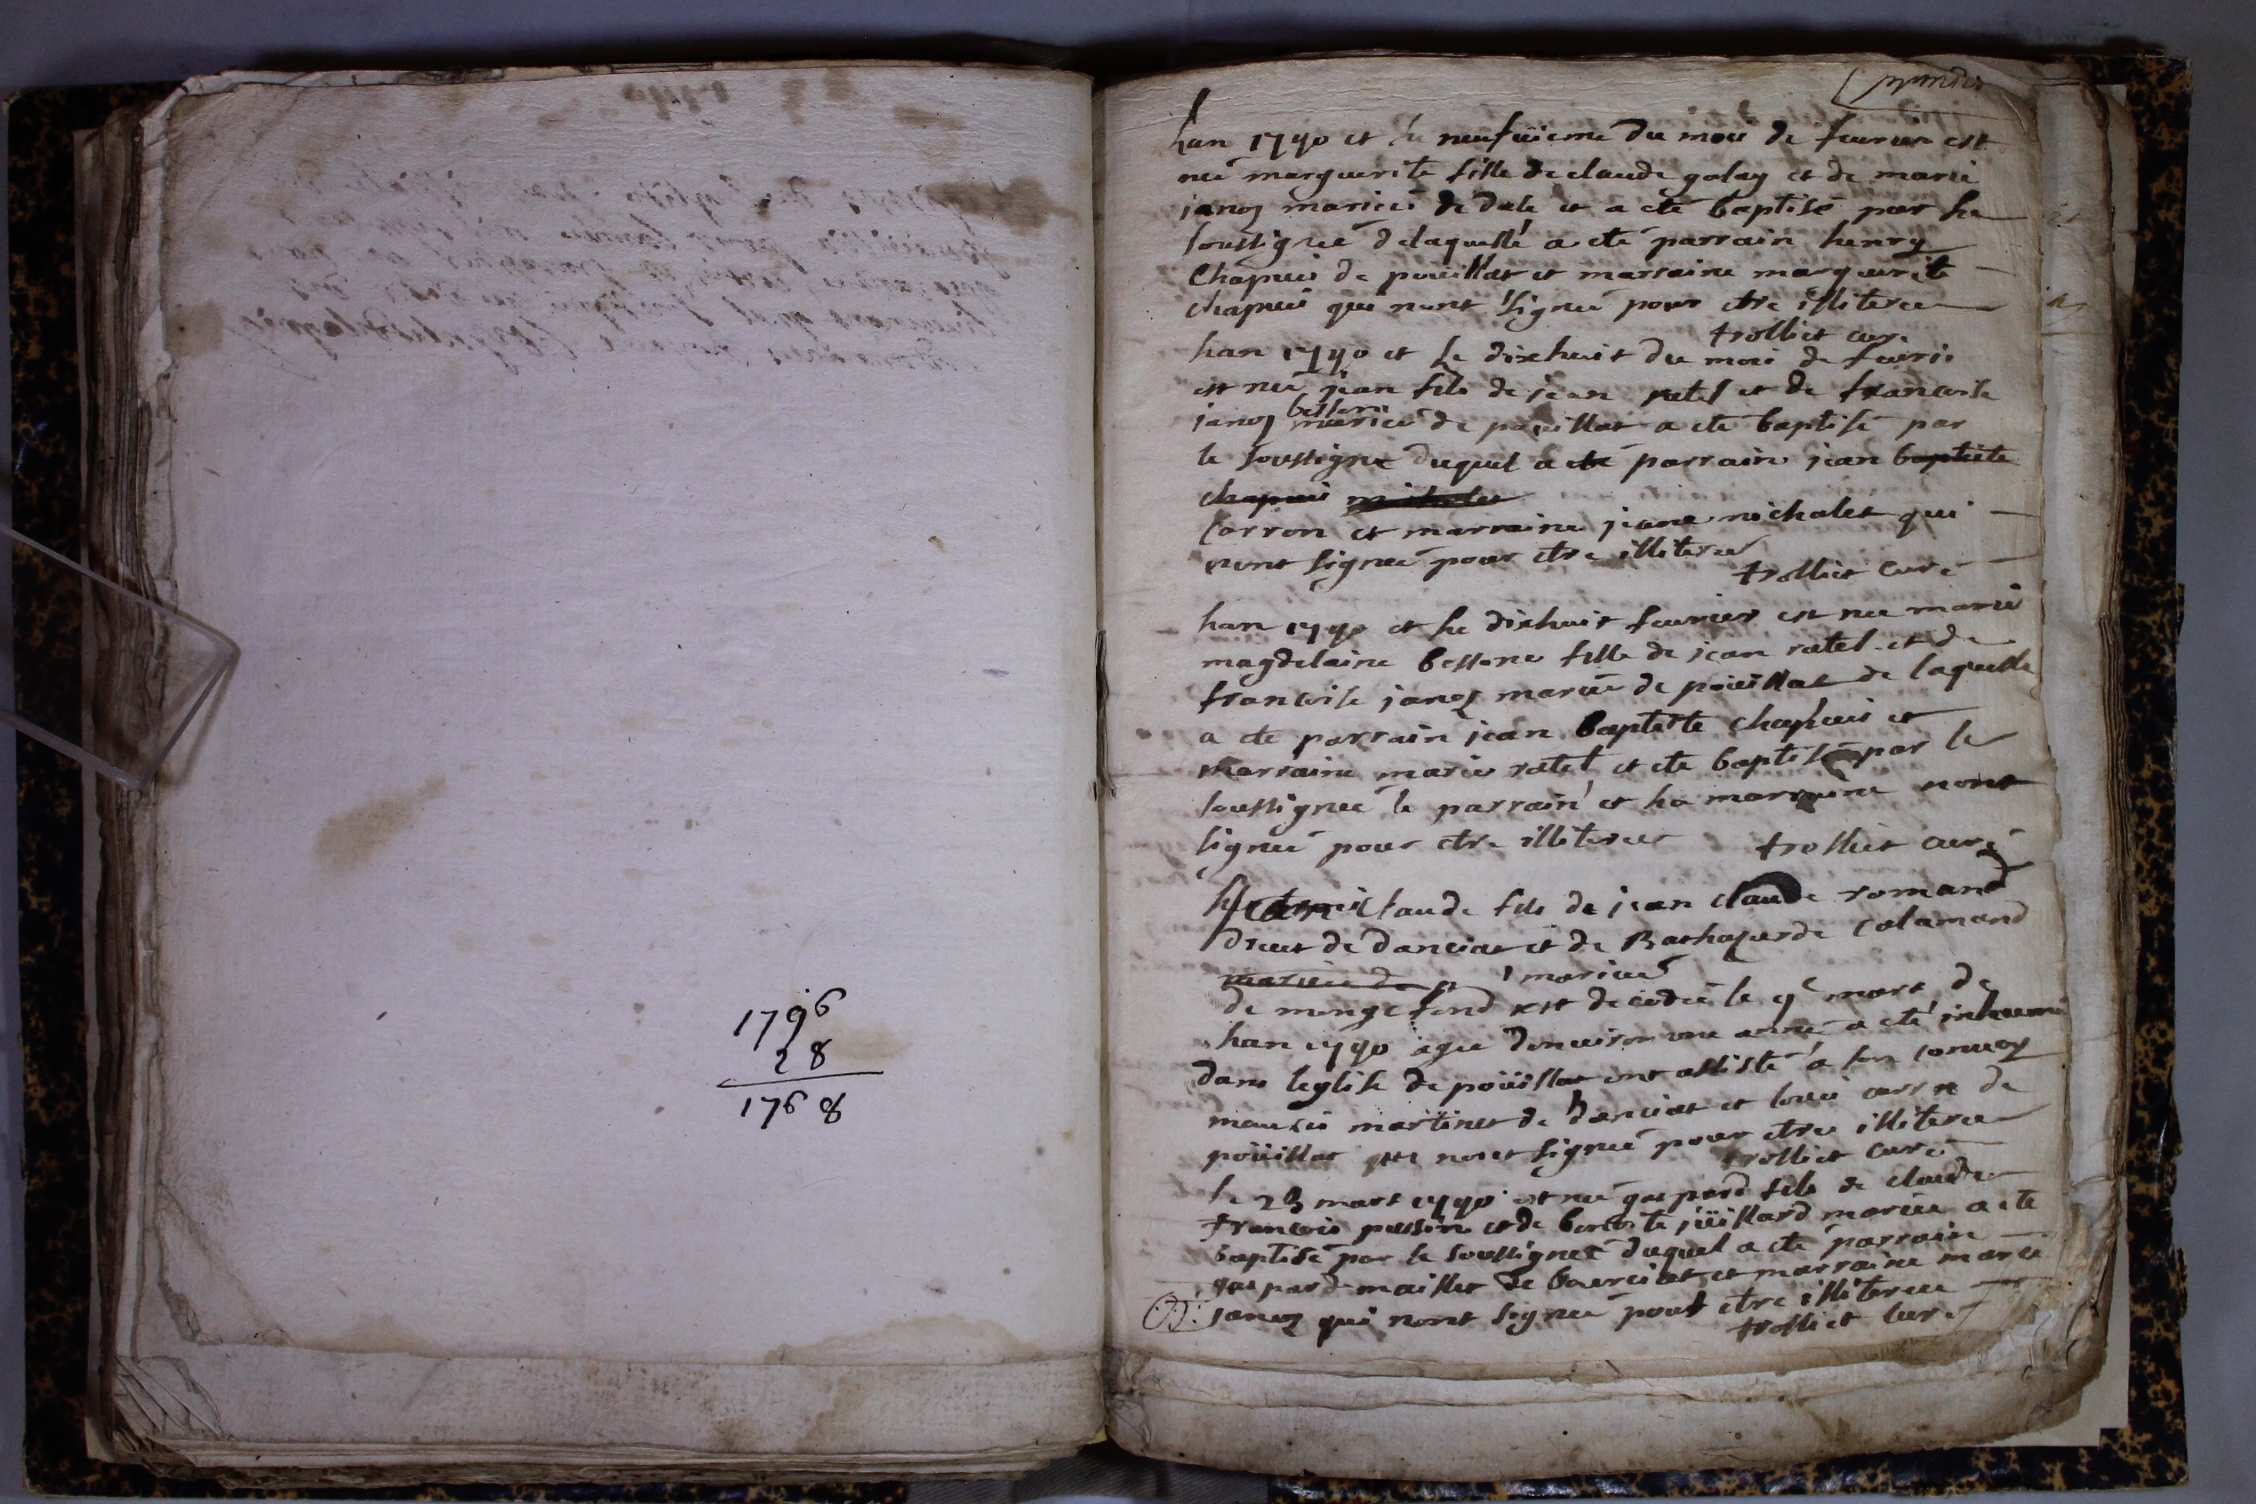 1796
28
1768
han 1790 et le neufuieme du moi de feurier est
neé marguerite fille de claude golay et de marie
janoz marieé de dale et a eté baptisé par le
soussigneé delaquelle a eté parrain henry
Chapuis de poüillat et marraine marguerite
chapuis qui nont signeé pour etre illiteree
trolliet curé
han 1790 et le dixhuit du moi de feuri
est neé jean fils de jean ratel et de francoise
janoz bessons marieé de poüillat a eté baptisé par
le soussigne duquel a eté parrain jean baptiste
chapuis michalet
Carron et marraine jeane michalet qui
nont signeé pour etre illiteree
trolliet curé
han 1790 et le dixhuit feurier est neé marie
magdelaine bessone fille de jean ratel et de
francoise janoz marieé de poüillat de laquelle
a ete parrain jean baptiste chapuis et
marraine marie ratel et ete baptisé par le
soussigneé le parrain et ha marraine nont
signeé pour etre illiteree trolliet curé
claude fils de jean claude romand
de danciat et de Bathazarde Calamand
mariee de p marieé
de mongefond est decedeé le 9e mars de
han 1790 ageé denuiron une anneé a eté inhumé
dans leglise de poüillat ont assisté a son conuoy
martinet de danciat et loui de
poüillat qui nont signeé pour etre illiteree
trolliet curé
le 23 mars 1790 est neé gaspard fils de claude
francois et de benoite jüillard marieé a ete
baptisé par le soussigneé duquel a eté parrain
gaspard maillet de bourciat et marraine marie
janoz qui nont signeé pour etre illiteree
trolliet curé